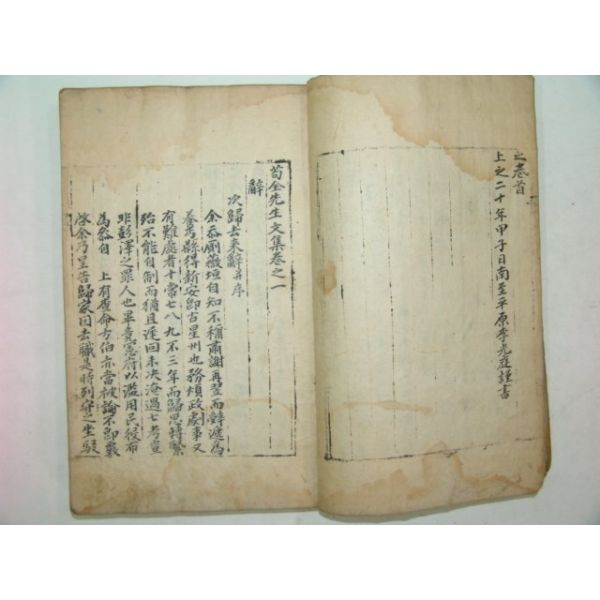 之卷首
上之二十年甲子日南至平原李光庭謹書
筍仝先生文集卷之一
辭
次歸去來辭并序
余忝厠薇垣自知不稱肅謝再登而辭遞爲
養焉縣得新安卽古星州也務煩政劇事又
有難處者十常七八九不三年而歸思轉繁
殆不能自制而猶且遲回未決淹過七考豈
非彭澤之罪人也畢竟憲府以濫用民役布
爲忝自 上有查命方伯亦當被論不卽嚴
啓余乃呈告歸家因去職是時列守之坐駁